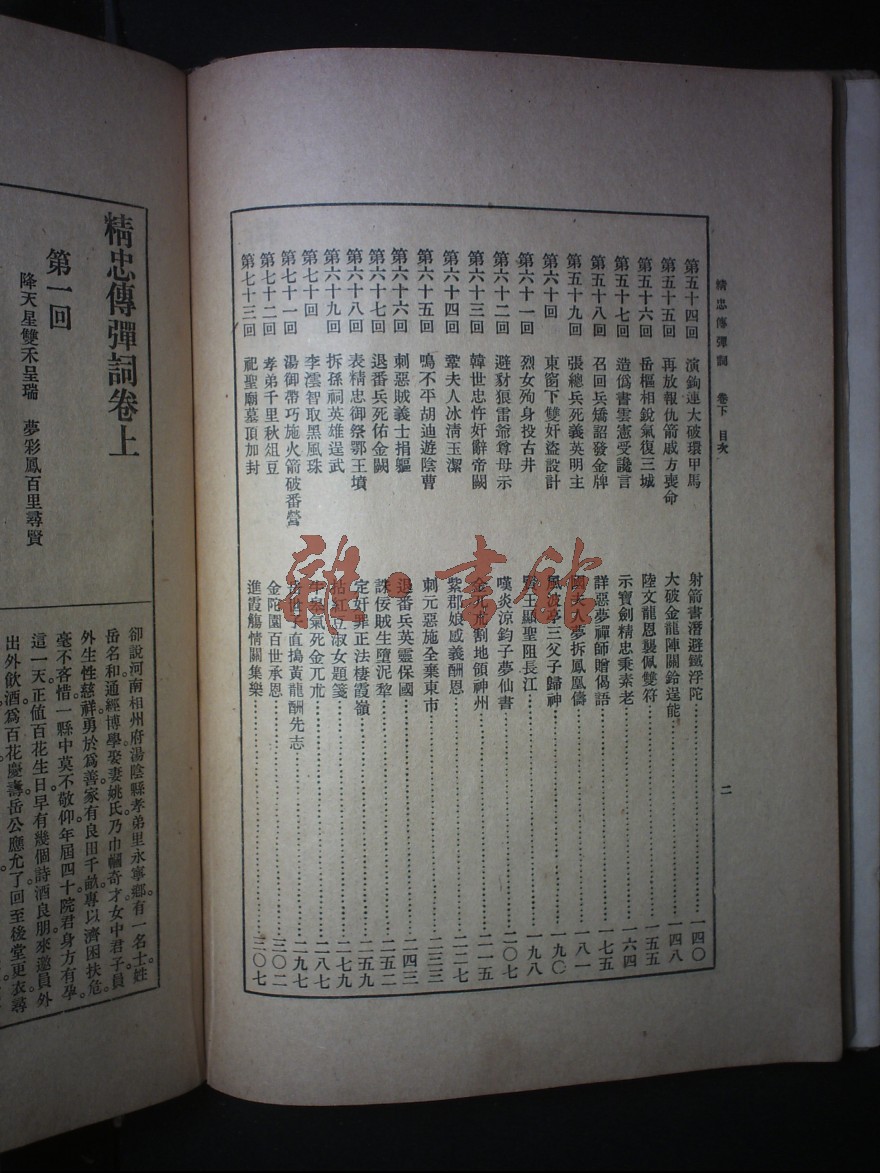 精忠傳彈詞 卷下 目次
二
第五十四回 演鈎連大破環甲馬 射箭書潛避鐵浮陀 一四〇
第五十五回 再放報仇箭戚方喪命 大破金龍陣關鈴逞能 一四八
第五十六回 岳樞相銳氣復三城 陸文龍恩襲佩雙符 一五五
第五十七回 造僞書雲憲受讒言 示寶劍精忠秉素老 一六四
第五十八回 召回兵矯詔發金牌 詳惡夢禪師贈偈語 一七五
第五十九回 張總兵死義英明主 國夫人夢拆鳳凰儔 一八一
第六十回 東窗下雙奸盜設計 風波亭三父子歸神 一九〇
第六十一回 烈女殉身投古井 賢王顯聖阻長江 一九八
第六十二回 避豺狼雷爺尊母示 嘆炎涼鈞子夢仙書 二〇七
第六十三回 韓世忠忤奸辭帝闕 金兀朮割地領神州 二一五
第六十四回 鞏夫人冰清玉潔 紫郡娘感義酬恩 二二七
第六十五回 鳴不平胡迪遊陰曹 刺元惡施全棄東市 二三三
第六十六回 刺惡賊義士捐軀 退番兵英靈保國 二四三
第六十七回 退番兵死佑金闕 誅佞賊生墮泥犂 二五二
第六十八回 表精忠御祭鄂王墳 定奸罪正法棲霞嶺 二五九
第六十九回 拆孫祠英雄逞武 拈紅豆淑女題箋 二七九
第七十回 李澐智取黑風珠 牛皋氣死金兀朮 二八七
第七十一回 湯御帶巧施火箭破番營 岳世子直搗黃龍酬先志 二九七
第七十二回 孝弟千里秋俎豆 金陀園百世承恩 三〇二
第七十三回 祀聖廟墓頂加封 進霞觴情關集樂 三〇七
精忠傳彈詞卷上
第一回
降天星雙禾呈瑞 夢彩鳳百里尋賢
卻說河南相州府湯陰縣孝弟里永寧鄉。有一名士。姓
岳名和。通經博學。娶妻姚氏。乃巾幗奇才。女中君子。員
外生性慈祥。勇於爲善。家有良田千畝。專以濟困扶危。
毫不吝惜。一縣中莫不敬仰。年屆四十。院君身方有孕。
這一天正値百花生日。早有幾個詩酒良朋。來邀員外
出外飲酒。爲百花慶壽。岳公應允了。回至後堂更衣。尋